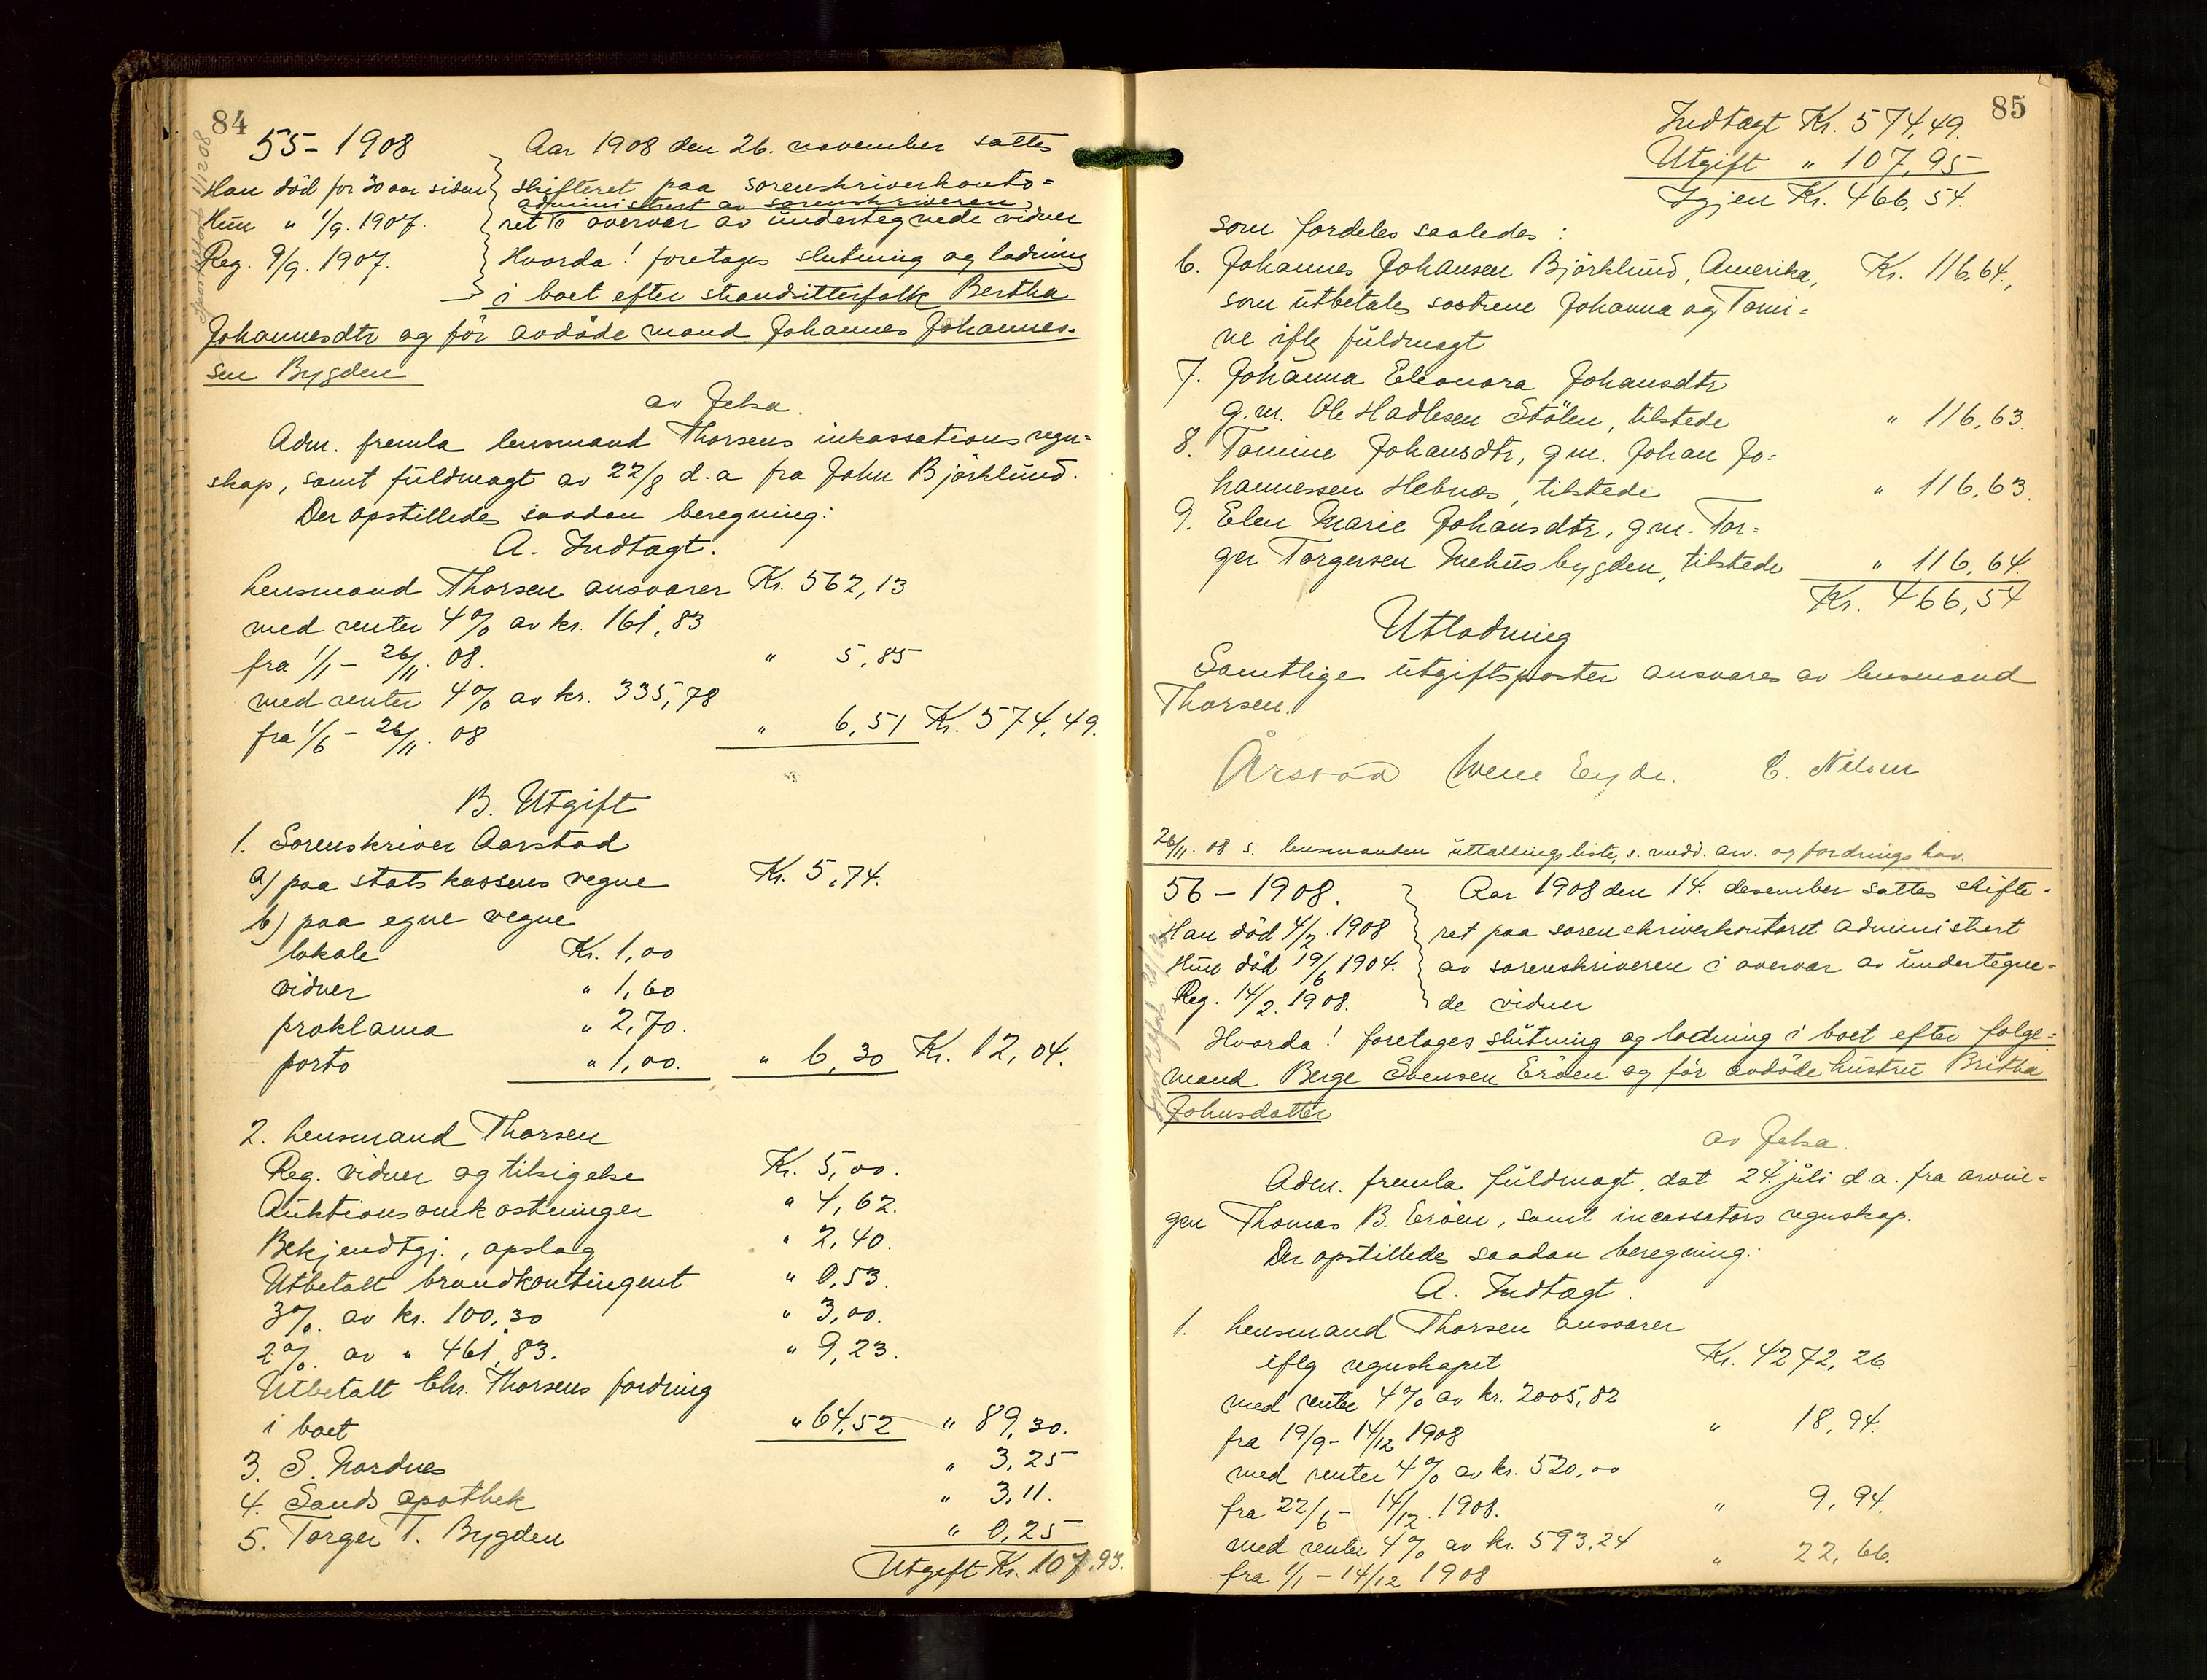 84
55 - 1908
Han död for 30 aar siden
Hun " 1/9. 1907.
Reg. 9/9. 1907.
Aar 1908 den 26. november sattes
skifteret paa sorenskriverkonto=
administrert av sorenskriveren,
ret i overvær av undertegnede vidner
Hvorda! foretages slutning og lodning
i boet efter strandsitterfolk Bertha
Johannesdtr og för avdöde mand Johannes Johannes-
sen Bygden
av Jelsa.
Adm. fremla lensmand Thorsens inkassationsregn=
skap, samt fuldmagt av 22/8 d.a fra John Björklund.
Der opstilledes saadan beregning:
A. Indtægt.
Lensmand Thorsen ansvarer Kr. 562,13
med renter 4% av kr. 161,83
fra 1/1 - 26/11. 08. " 5,85
med renter 4% av kr. 335,78
fra 1/6 - 26/11. 08 " 6,51 Kr. 574,49.
B. Utgift
1. Sorenskriver Aarstad
a) paa statskassens vegne Kr. 5,74.
b) paa egne vegne
lokale Kr. 1,00
vidner " 1,60
proklama " 2,70.
porto " 1,00. " 6,30 Kr. 12,04.
2. Lensmand Thorsen
Reg. vidner og tilsigelse Kr. 5,00.
Auktionsomkostninger " 4,62.
Bekjendtgj., opslag " 2,40.
Utbetalt brandkontingent " 0,53.
3% av kr. 100,30 " 3,00.
2% av " 461,83. " 9,23.
Utbetalt Chr. Thorsens fordring
i boet " 64,52 " 89,30.
3. S. Nordnes " 3,25
4. Sands apothek " 3,11.
5. Torger T. Bygden " 0,25
Utgift Kr. 107,93.
85
Indtægt Kr. 574,49.
Utgift " 107,95
Igjen Kr. 466,54.
som fordeles saaledes:
6. Johannes Johansen Björklund, Amerika, Kr. 116,64,
som utbetales søstrene Johanna og Tomi=
ne iflg fuldmagt
7. Johanna Eleonora Johansdtr
g.m. Ole Hadlesen Stölen, tilstede " 116,63.
8. Tomine Johansdtr, gm. Johan Jo=
hannessen Hebnæs, tilstede " 116,63.
9. Elen Marie Johansdtr, gm. Tor=
ger Torgersen Mehusbygden, tilstede " 116,64.
Kr. 466,54
Utlodning
Samtlige utgiftsposter ansvares av lensmand
Thorsen.
Årstad Eyde. C. Nilsen
26/11. 08 s. lensmanden uttællingsliste, s. medd. arv. og fordringshav.
56 - 1908.
Han död 4/2. 1908
Hun död 19/6 1904.
Reg. 14/2. 1908.
Aar 1908 den 14. desember sattes skifte-
ret paa sorenskriverkontoret administrert
av sorenskriveren i overvær av undertegne-
de vidner
Hvorda! foretages slutning og lodning i boet efter folge=
mand Berge Svensen Eröen og för avdöde hustru Britha
Johnsdatter
av Jelsa.
Adm. fremla fuldmagt, dat 24. juli d.a. fra arvin-
gen Thomas B. Eröen, samt incassators regnskap.
Der opstilledes saadan beregning:
A. Indtægt.
1. Lensmand Thorsen ansvarer
iflg regnskapet Kr. 4272,26.
med renter 4% av kr. 2005,82
fra 19/9 - 14/12 1908 " 18,94.
med renter 4% av kr. 520,00
fra 22/6 - 14/12. 1908. " 9,94.
med renter 4% av kr. 593,24
fra 1/1 - 14/12 1908 " 22,66.